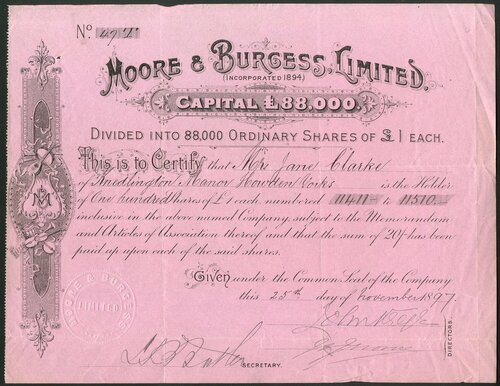 No.
MOORE & BURGESS, LIMITED.
(INCORPORATED 1894)
CAPITAL £88,000.
DIVIDED INTO 88,000 ORDINARY SHARES OF £1 EACH.
This is to Certify that Mrs Jane Clarke
of Manor Howden Yorks is the Holder
of One hundred Shares of £1 each numbered 11411 to 11510
inclusive in the above named Company, subject to the Memorandum
and Articles of Association thereof and that the sum of 20/- has been
paid up upon each of the said shares.
Given under the Common Seal of the Company
this 25th day of November 1897.
M
MOORE & BURGESS
LIMITED
SECRETARY.
DIRECTORS.